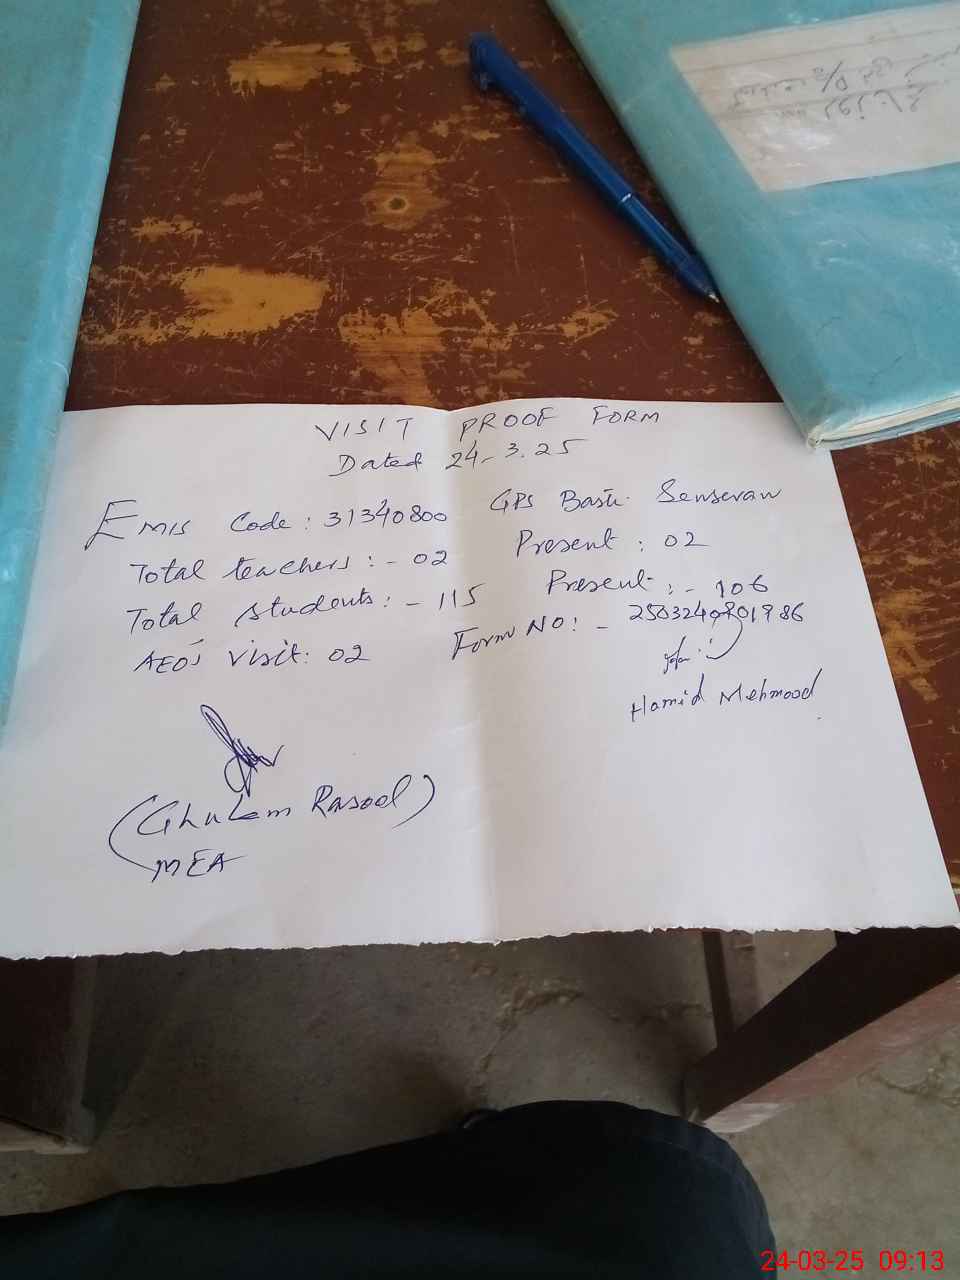 VISIT PROOF FORM
Dated 24-3.25
EMIS Code: 31340800 GPS Basti Sensevan
Total teachers:- 02 Present: 02
Total students:- 115 Present:- 106
AEO's visit: 02 Form NO:-
Hamid Mehmood
(Ghulam Rasool)
MEA
24-03-25 09:13